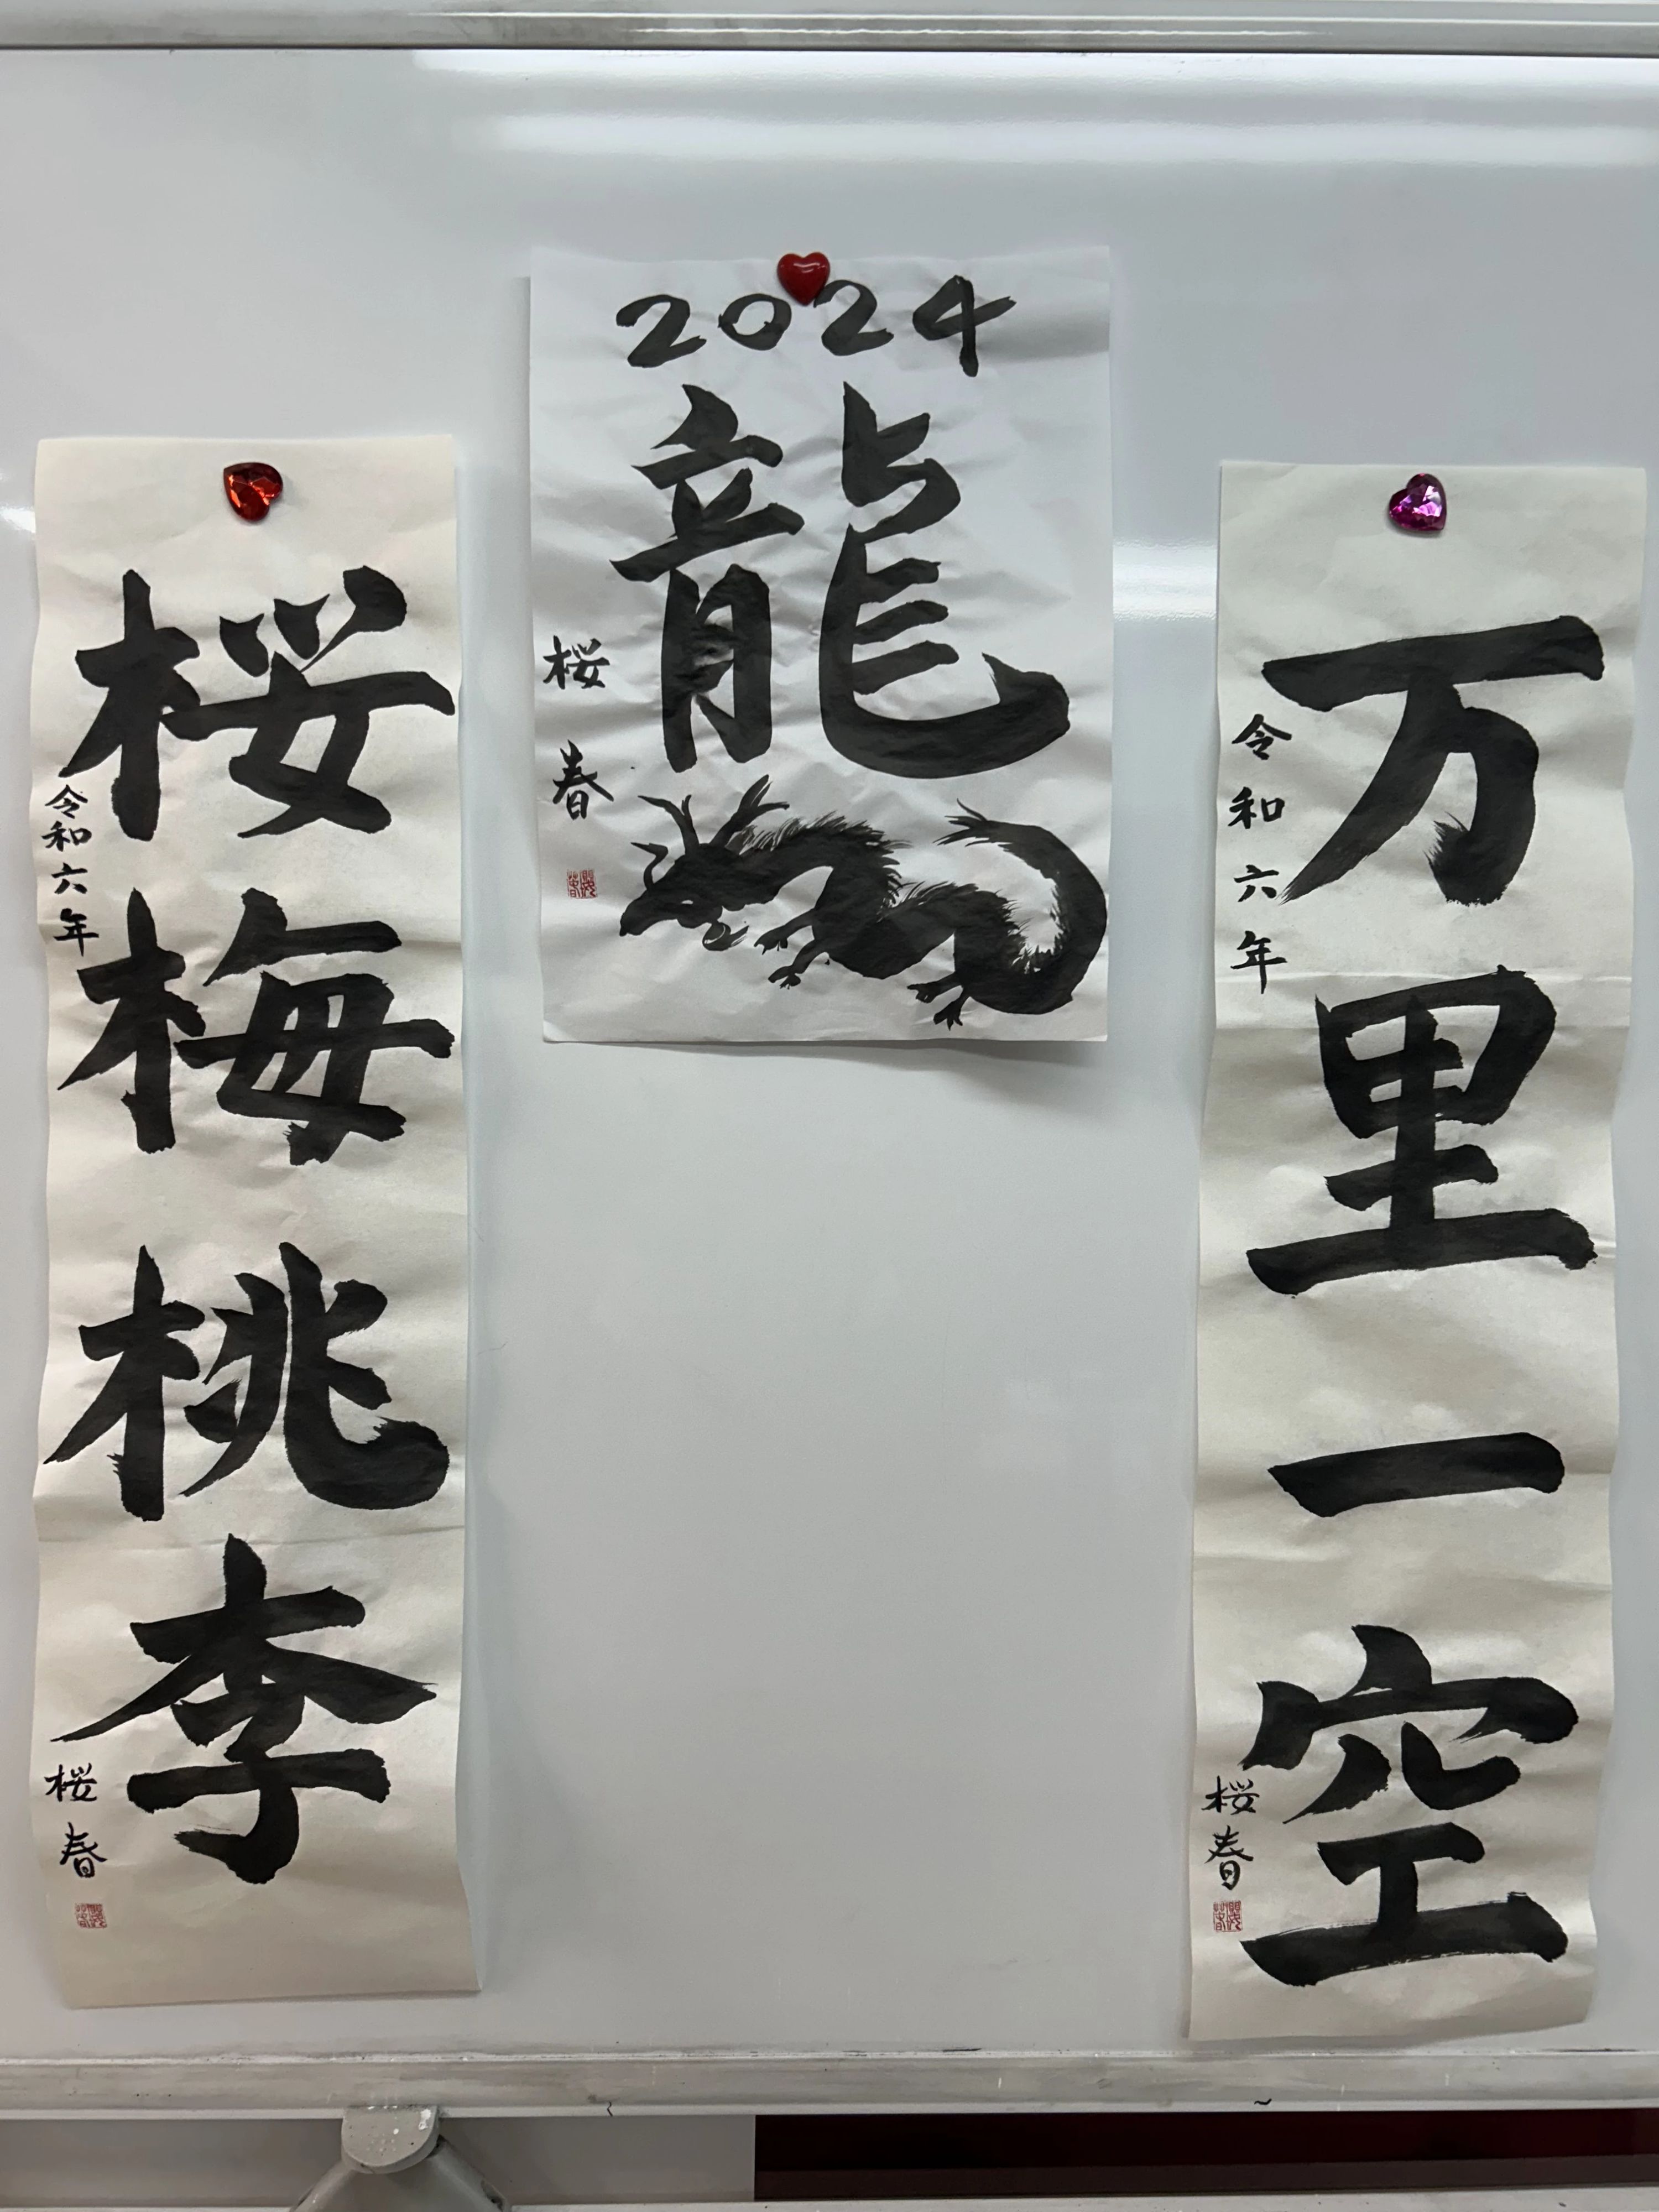 万里一空
令和六年
桜春
2024
龍
桜春
桜梅桃李
令和六年
桜春